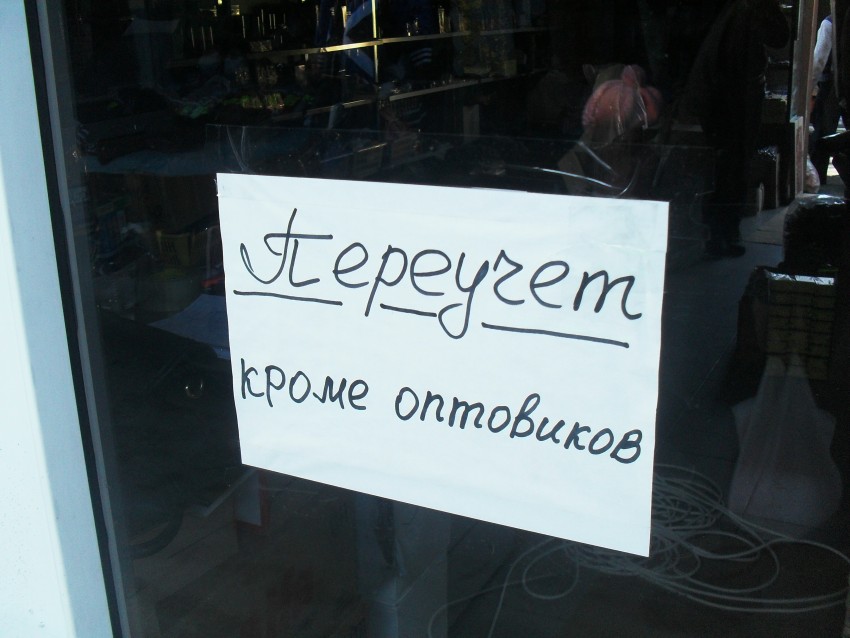 Переучет
кроме оптовиков